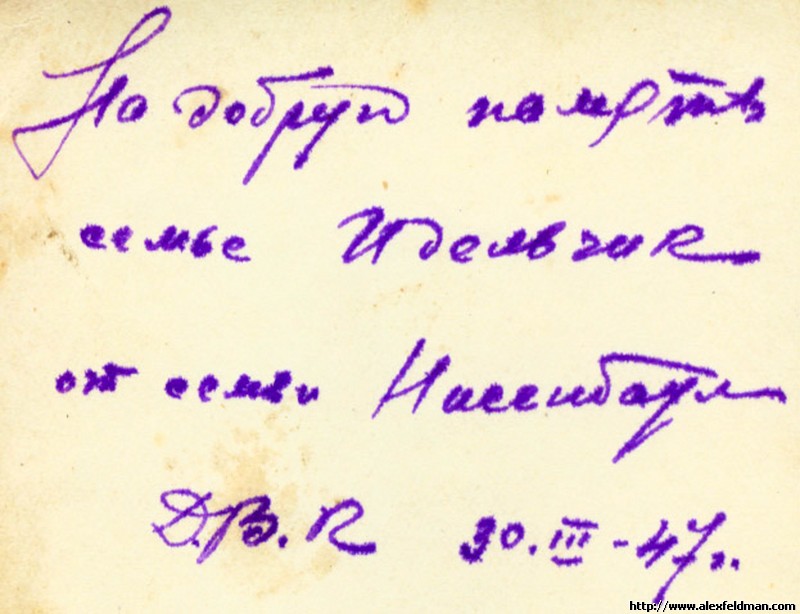 На добрую память
семье Идельчик
от семьи Нисенбаум
Д.В.К 30.III-47г.
http://www.alexfeldman.com